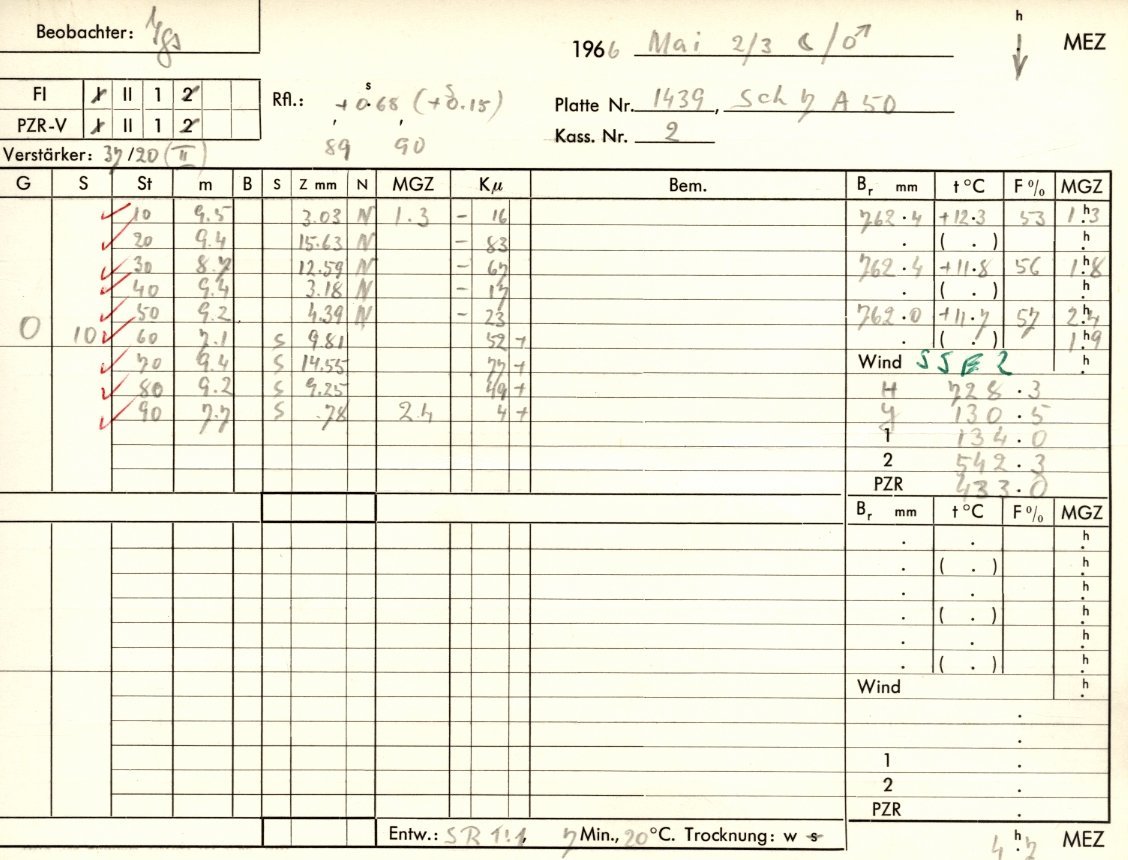 Beobachter:
1966 Mai 2/3 ☾/♂ h . MEZ
FI I II 1 2
PZR-V I II 1 2
Rfl.: +0.ˢ68 (+0.ˢ15)
89 90
Platte Nr. 1439, Sch 7 A 50
Kass. Nr. 2
Verstärker: 37/20 (II)
G S St m B S Z mm N MGZ Kμ Bem. Br mm t °C F % MGZ
10 9.5 3.03 N 1.3 - 16 762.4 +12.3 53 1.ʰ3
20 9.4 15.63 N - 83 . ( . ) h
30 8.7 12.59 N - 67 762.4 +11.8 56 1.ʰ8
40 9.4 3.18 N - 17 . ( . ) h
50 9.2 4.39 N - 23 762.0 +11.7 57 2.ʰ4
0 10 60 7.1 S 9.81 52 + . ( . ) 1.ʰ9
70 9.4 S 14.55 77 + Wind SSE 2 h
80 9.2 S 9.25 49 + H 728.3
90 7.7 S .78 2.4 4 + Y 130.5
1 134.0
2 542.3
PZR 433.0
Br mm t °C F % MGZ
. . h
. ( . ) h
. . h
. ( . ) h
. . h
. ( . ) h
Wind h
.
.
1 .
2 .
PZR .
Entw.: SR 1:1, 7 Min., 20 °C. Trocknung: w s
4.ʰ7 MEZ